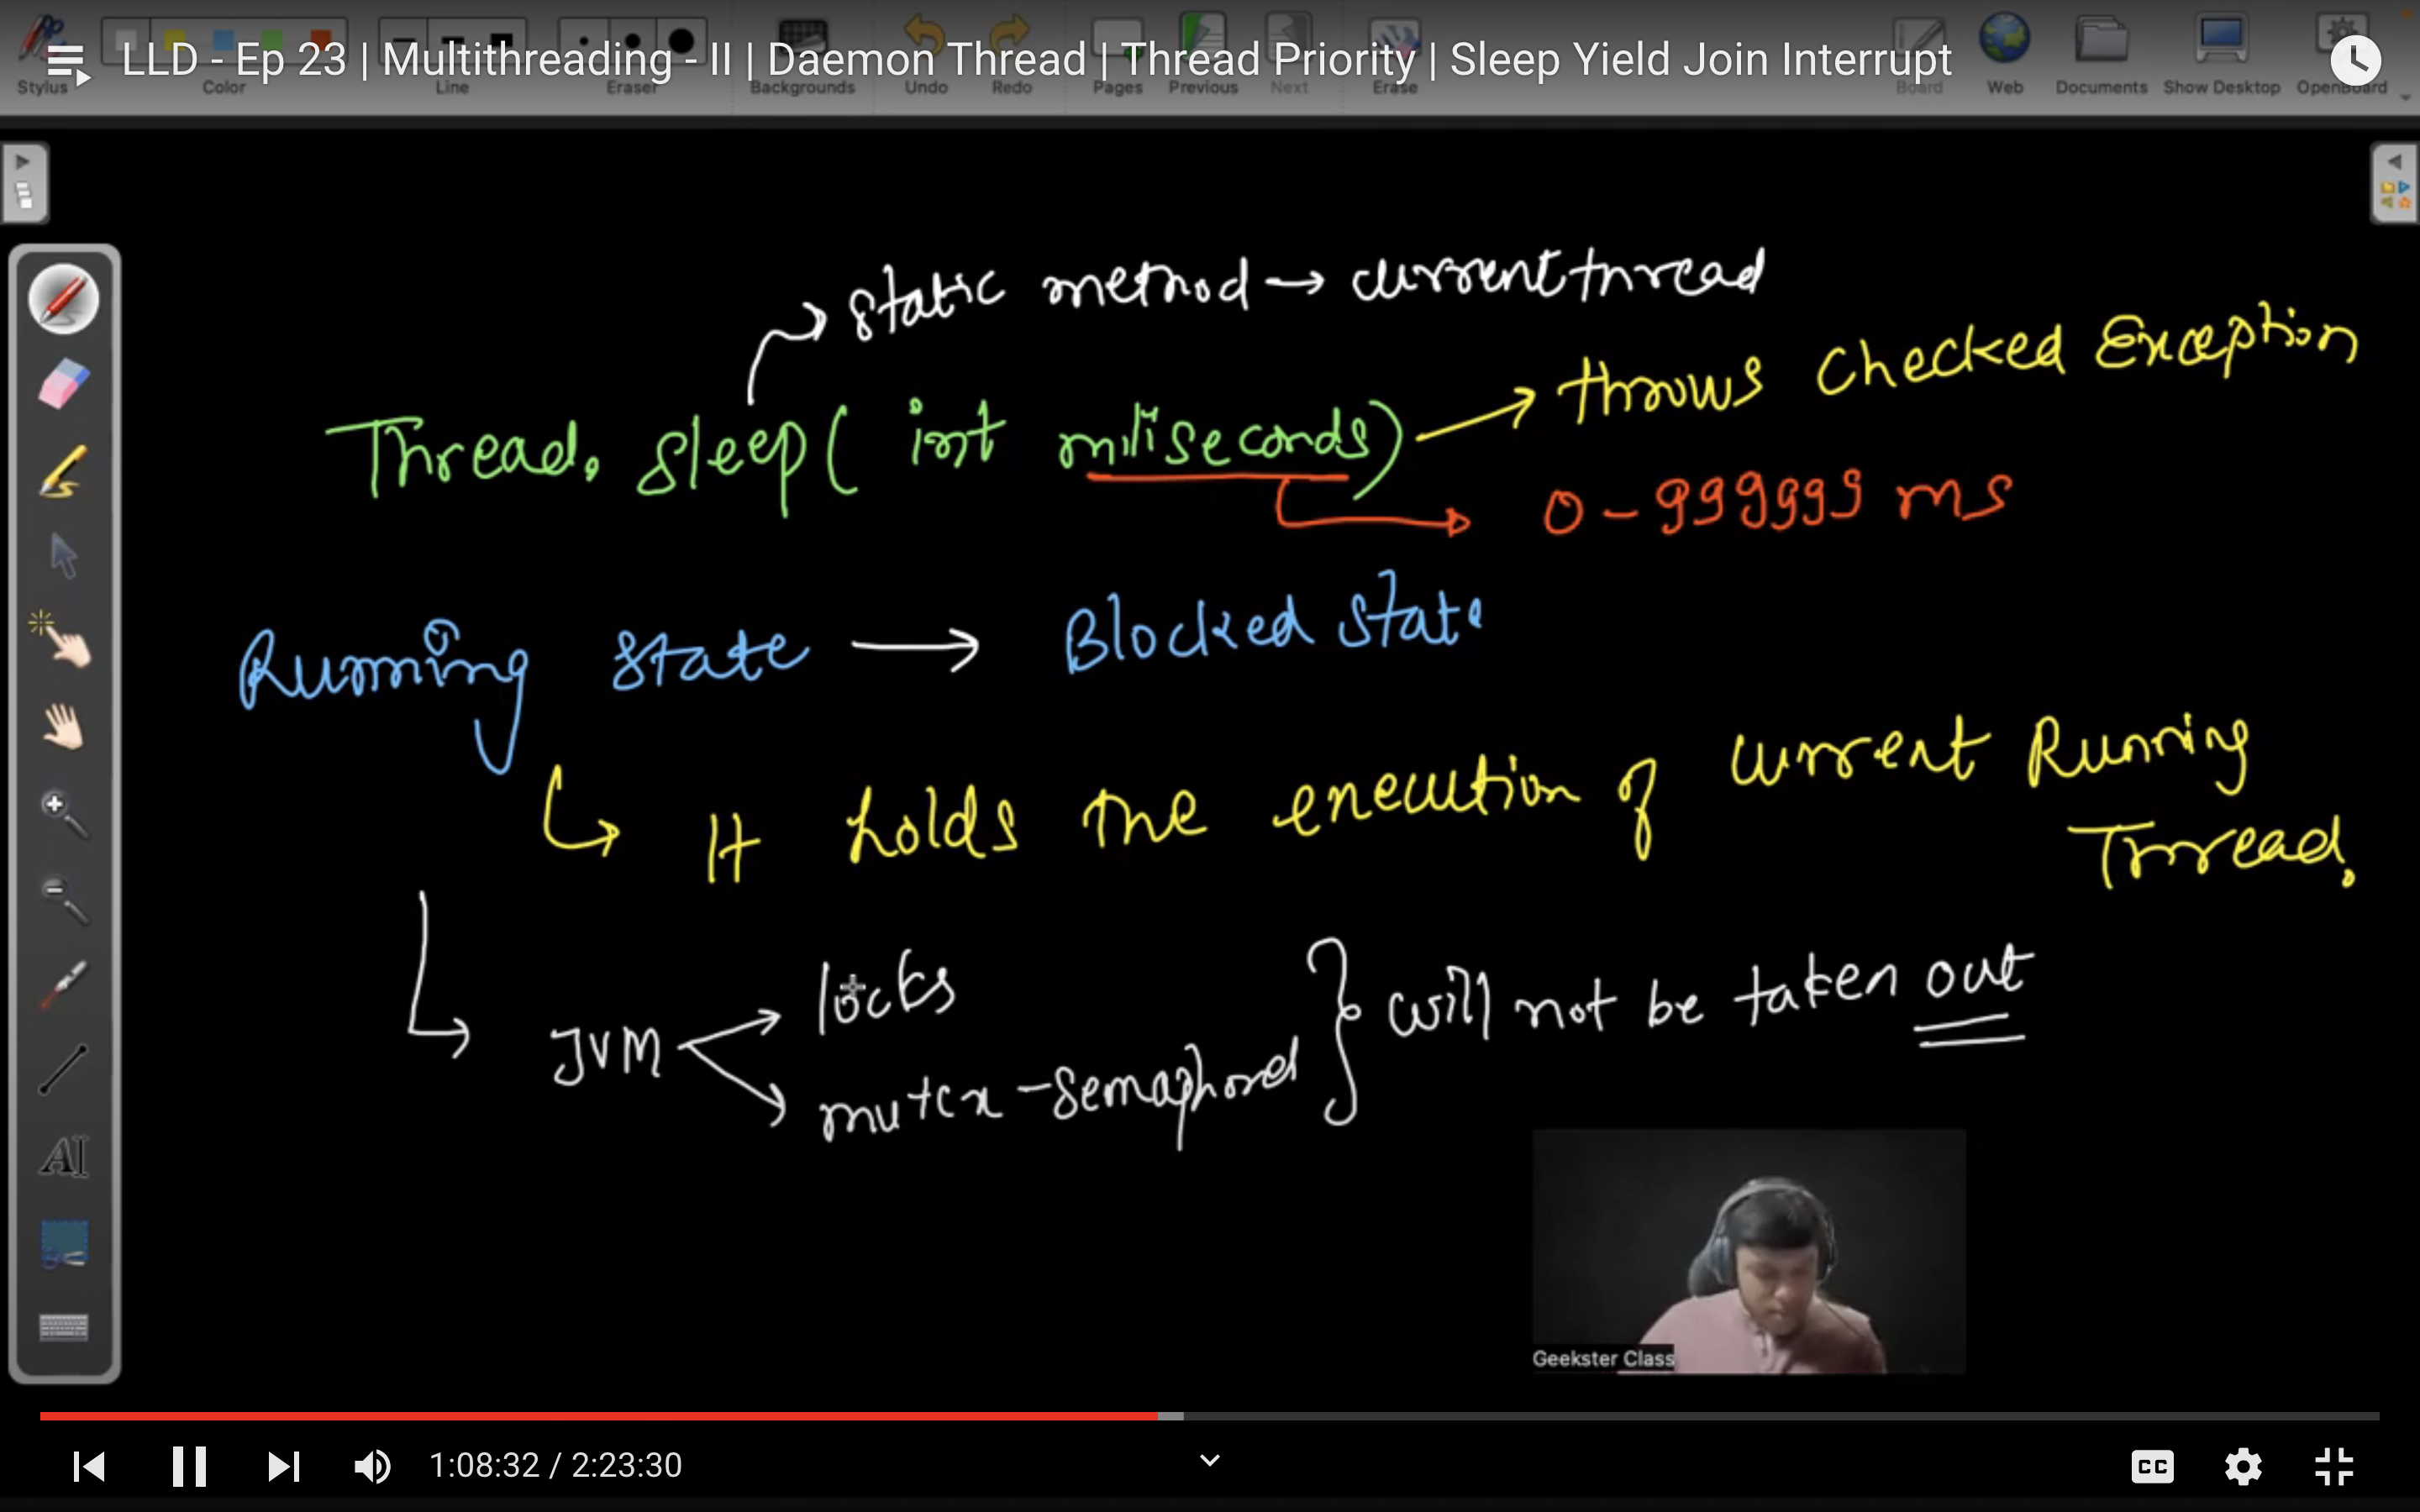 LLD - Ep 23 | Multithreading - II | Daemon Thread | Thread Priority | Sleep Yield Join Interrupt
Stylus Color Line Eraser Backgrounds Undo Redo Pages Previous Next Erase Board Web Documents Show Desktop OpenBoard
static method → currentthread
Thread. Sleep( int miliseconds) → throws Checked Exception
0 - 999999 ms
Running state → Blocked state
It holds the execution of current Running
Thread.
JVM locks
mutex - Semaphored } will not be taken out
Geekster Class
1:08:32 / 2:23:30
CC